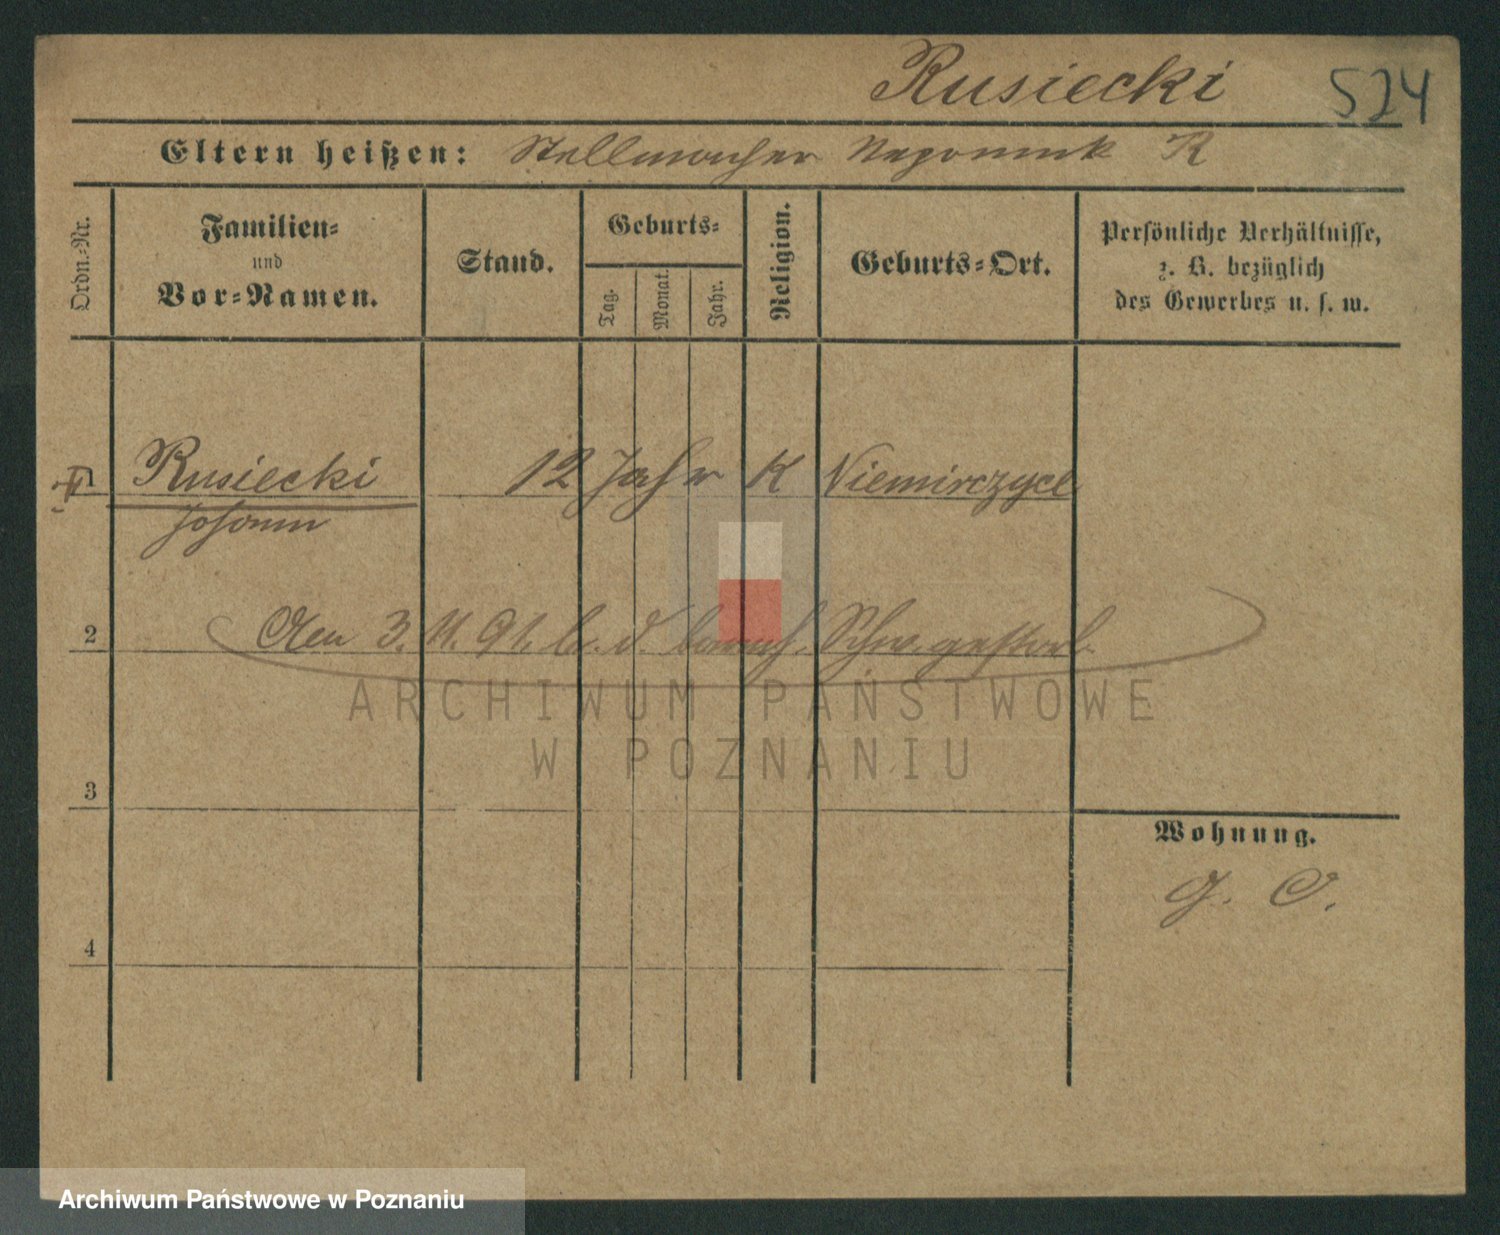 Rusiecki 524
Eltern heißen: Stellmacher Nepomuk R
Ordn.-Nr.
Familien-
und
Vor-Namen.
Stand.
Geburts-
Tag.
Monat.
Jahr.
Religion.
Geburts-Ort.
Persönliche Verhältnisse,
z. B. bezüglich
des Gewerbes u. s. w.
Rusiecki 12 Jahr K Niemirczyce
Johann
2 Den 3. 11. 91. b. d. barmh. Schw. gestorb.
ARCHIWUM PAŃSTWOWE
W POZNANIU
3
Wohnung.
G. O.
4
Archiwum Państwowe w Poznaniu